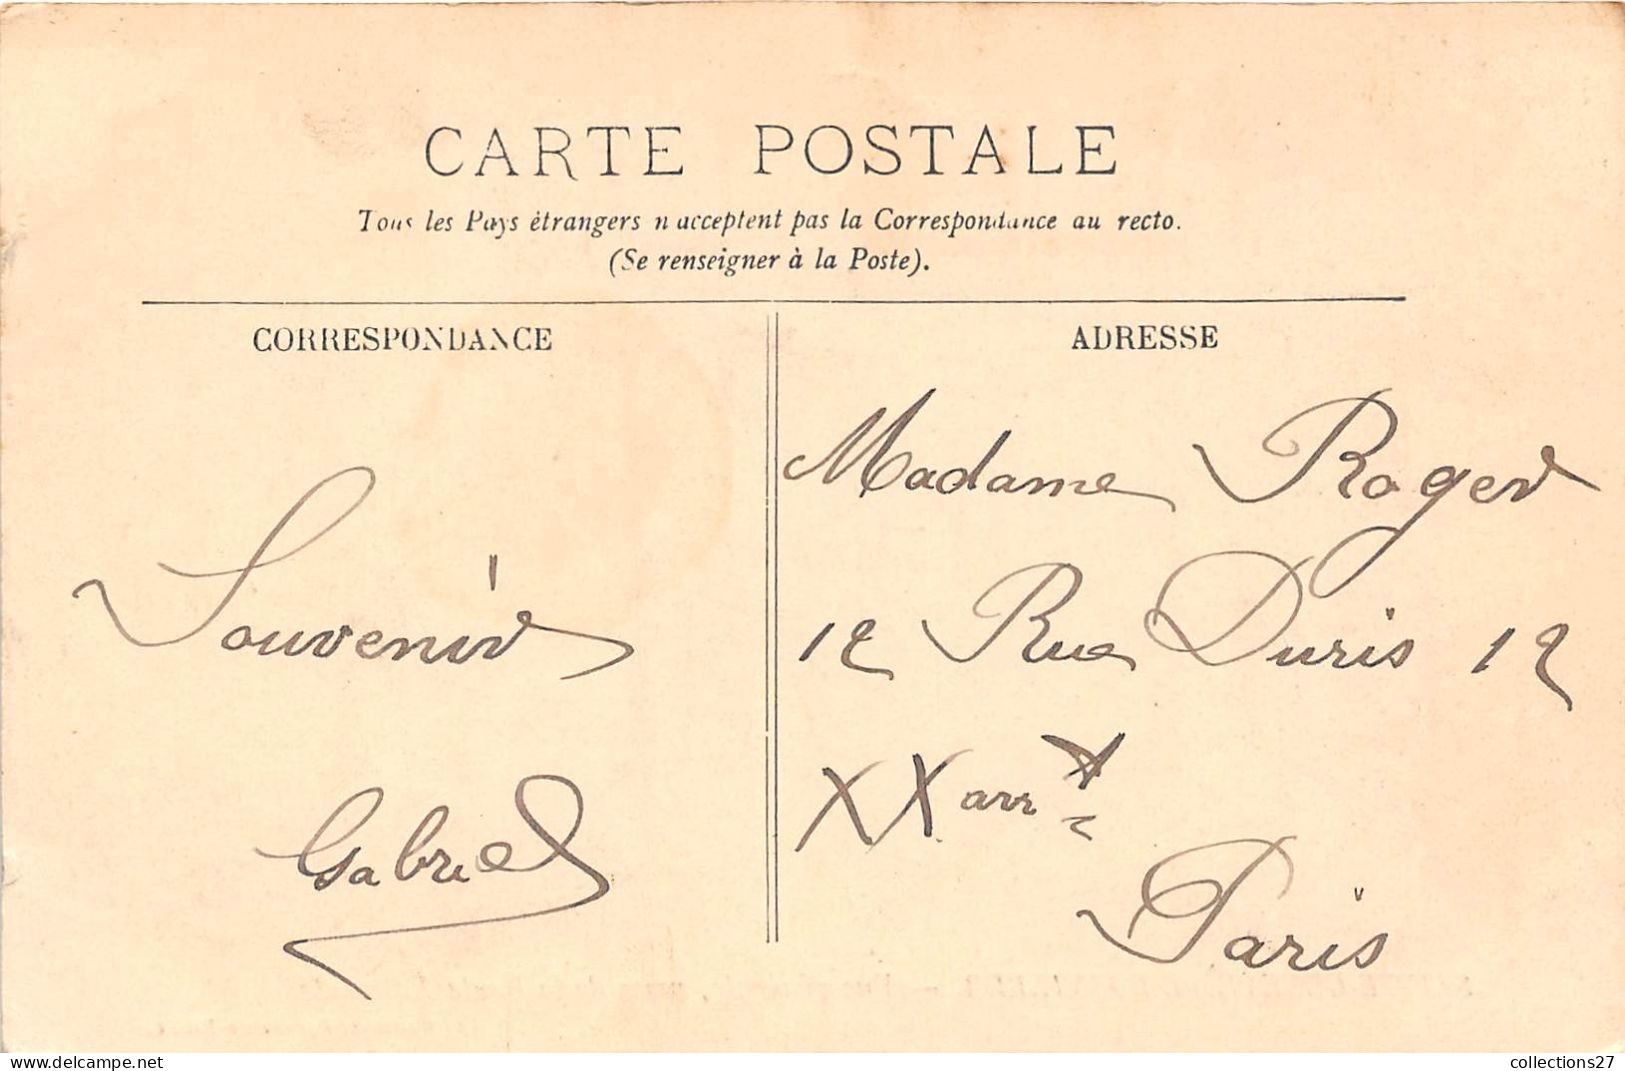 CARTE POSTALE
Tous les Pays étrangers n'acceptent pas la Correspondance au recto.
(Se renseigner à la Poste).
CORRESPONDANCE
Souvenir
Gabriel
ADRESSE
Madame Roger
12 Rue Duris 12
XX arrt
Paris
collections27